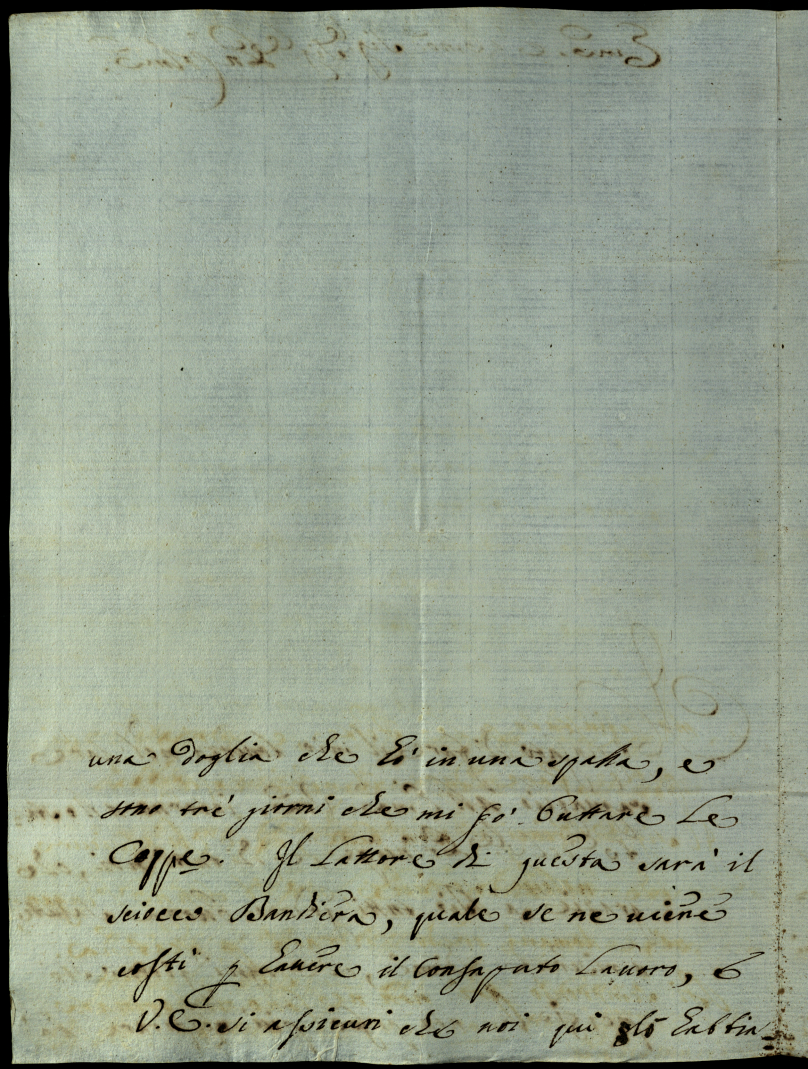 una doglia che hò in una spalla, e
sono trè giorni che mi fò buttare le
Coppe. Il Lattore di questa sarà il
sciocco Bandiera, quale se ne viene
costì p havere il Consaputo Lavoro, e
V. E. si assicuri che noi qui lò habbia